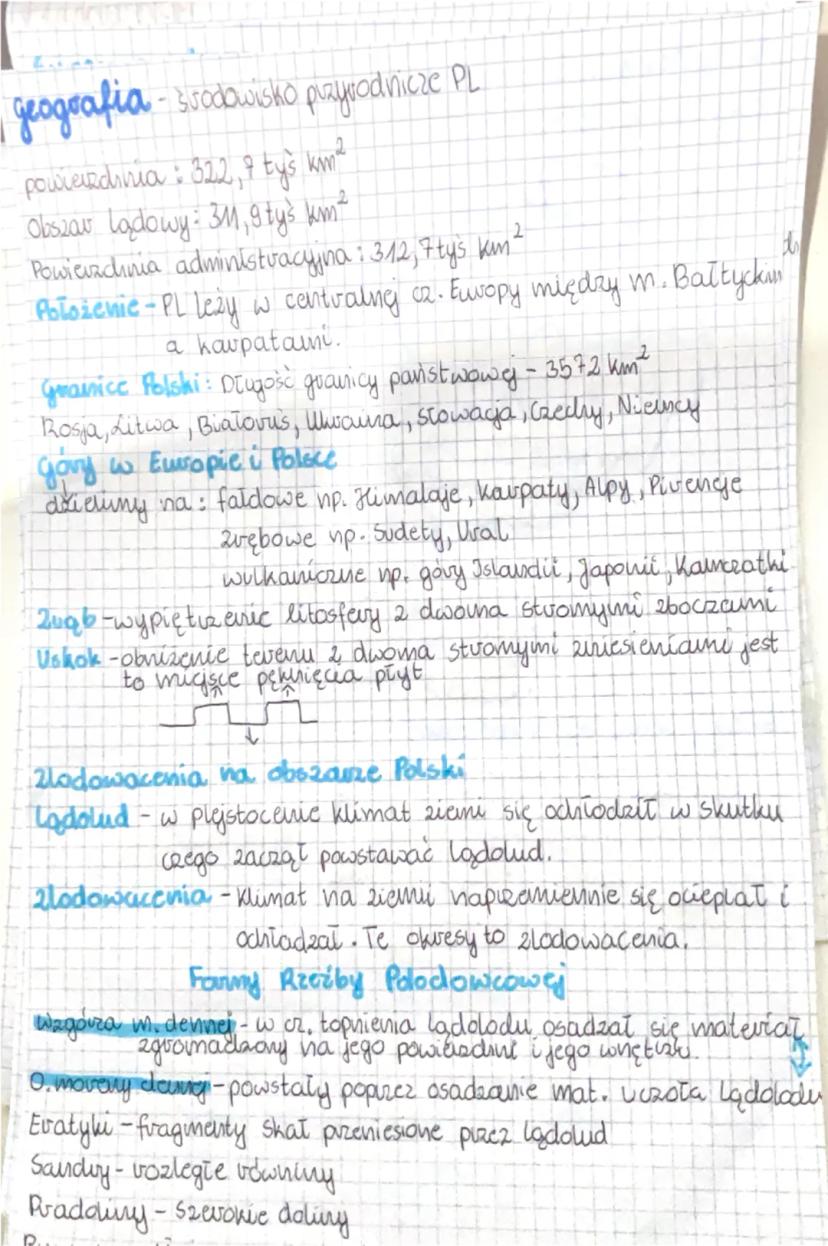 geografia - środowisko przyrodnicze PL
powierzchnia : 322,7 tyś km²
Obszar lądowy : 311,9 tyś km²
Powierzchnia administracyjna : 312,7 tyś km²
Położenie - PL leży w centralnej cz. Europy między m. Bałtyckim
a karpatami.
Granice Polski : Długość granicy państwowej - 3572 km²
Rosja, Litwa, Białoruś, Ukraina, Słowacja, Czechy, Niemcy
Góry w Europie i Polsce
dzielimy na : fałdowe np. Himalaje, Karpaty, Alpy, Pireneje
zrębowe np. Sudety, Ural
wulkaniczne np. góry Islandii, Japonii, Kamczatki
Zrąb - wypiętrzenie litosfery z dwoma stromymi zboczami
Uskok - obniżenie terenu z dwoma stromymi zniesieniami jest
to miejsce pęknięcia płyt
Zlodowacenia na obszarze Polski
Lądolud - w plejstocenie klimat ziemi się ochłodził w skutku
czego zaczął powstawać lądolud.
Zlodowacenia - klimat na ziemii naprzemiennie się ocieplał i
ochładzał. Te okresy to zlodowacenia.
Formy Rzeźby Polodowcowej
Wzgórza m. dennej - w cz. topnienia lądolodu osadzał się materiał
zgromadzony na jego powierzchni i jego wnętrzu.
O. moreny - powstały poprzez osadzanie mat. u czoła lądolodu
Eratyki - fragmenty skał przeniesione przez lądolud
Sandry - rozległe równiny
Pradoliny - szerokie doliny